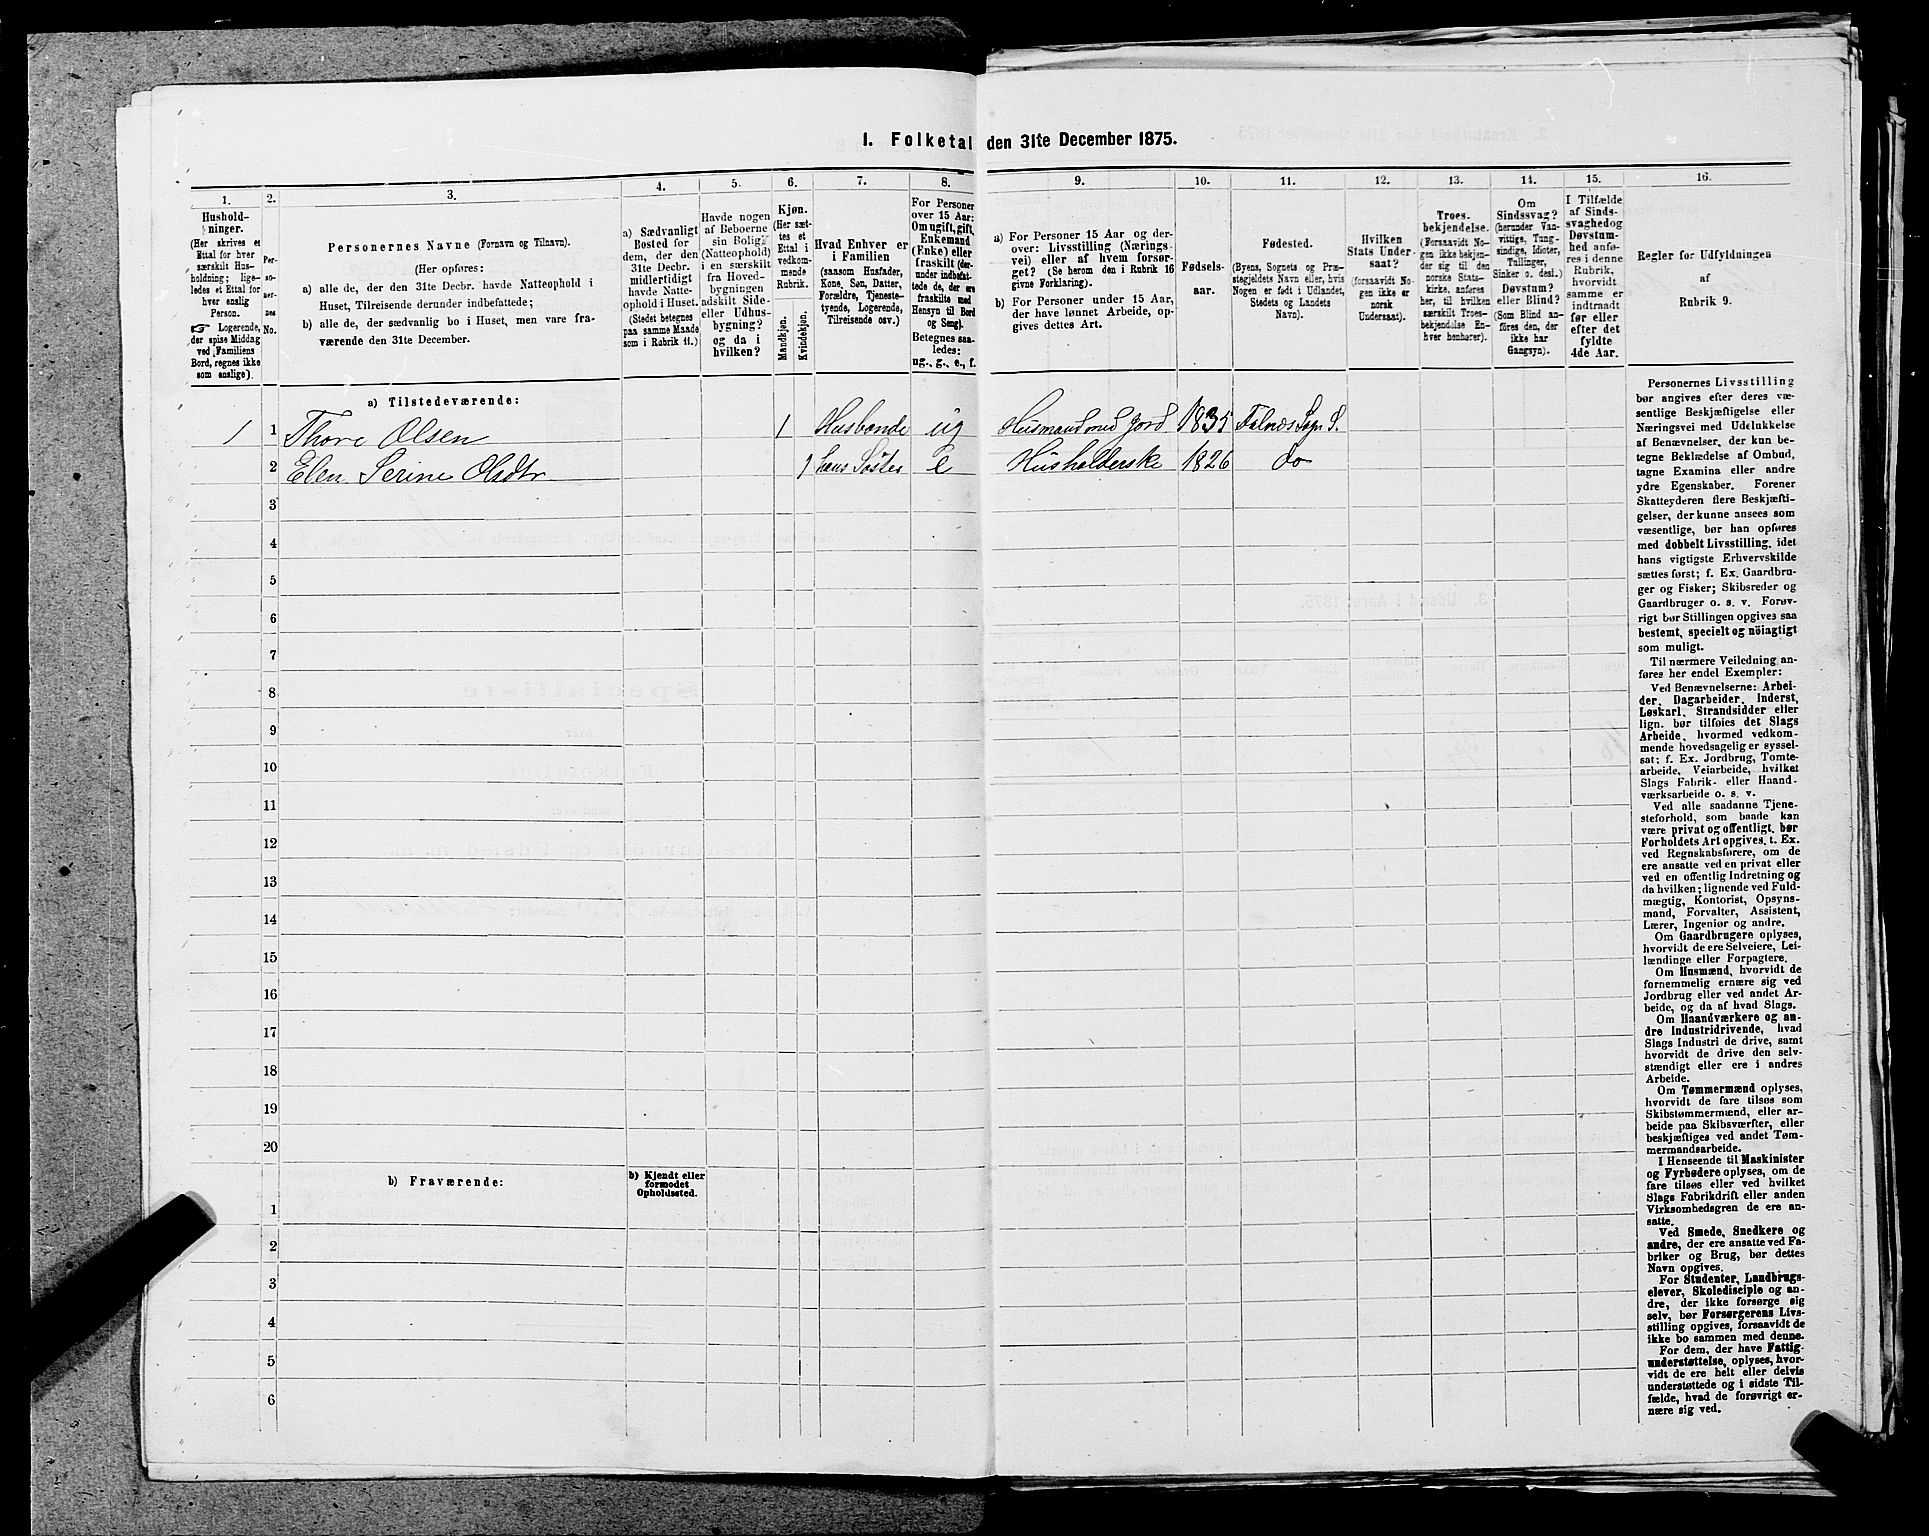 1. Folketal den 31te December 1875.
1. 2. 3. 4. 5. 6. 7. 8. 9. 10. 11. 12. 13. 14. 15. 16.
Hushold-
ninger.
(Her skrives et
Ettal for hver
særskilt Hus-
holdning; lige-
ledes et Ettal for
hver enslig
Person.
☞ Logerende,
der spise Middag
ved Familiens
Bord, regnes ikke
som enslige).
Per-
so-
ner-
nes
No.
Personernes Navne (Fornavn og Tilnavn).
(Her opføres:
a) alle de, der den 31te Decbr. havde Natteophold i
Huset, Tilreisende derunder indbefattede;
b) alle de, der sædvanlig bo i Huset, men vare fra-
værende den 31te December.
a) Sædvanligt
Bosted for
dem, der den
31te Decbr.
midlertidigt
havde Natte-
ophold i Huset.
(Stedet betegnes
paa samme Maade
som i Rubrik 11.)
Havde nogen
af Beboerne
sin Bolig
(Natteophold)
i en særskilt
fra Hoved-
bygningen
adskilt Side-
eller Udhus-
bygning?
og da i
hvilken?
Kjøn.
(Her sæt-
tes et
Ettal i
vedkom-
mende
Rubrik.
Mandkjøn.
Kvindekjøn.
Hvad Enhver er
i Familien
(saasom Husfader,
Kone, Søn, Datter,
Forældre, Tjeneste-
tyende, Logerende,
Tilreisende osv.)
For Personer
over 15 Aar:
Om ugift, gift,
Enkemand
(Enke) eller
fraskilt (der-
under indbefat-
tede de, der ere
fraskilte med
Hensyn til Bord
og Seng).
Betegnes saa-
ledes:
ug., g., e., f.
a) For Personer 15 Aar og der-
over: Livsstilling (Nærings-
vei) eller af hvem forsør-
get? (Se herom den i Rubrik 16
givne Forklaring).
b) For Personer under 15 Aar,
der have lønnet Arbeide, op-
gives dettes Art.
Fødsels-
aar.
Fødested.
(Byens, Sognets og Præ-
stegjeldets Navn eller, hvis
Nogen er født i Udlandet,
Stedets og Landets
Navn).
Hvilken
Stats Under-
saat?
(forsaavidt No-
gen ikke er
norsk
Undersaat).
Troes-
bekjendelse.
(Forsaavidt No-
gen ikke bekjen-
der sig til den
norske Stats-
kirke, anføres
her, til hvilken
særskilt Troes-
bekjendelse En-
hver henhører).
Om
Sindssvag?
(herunder Van-
vittige, Tung-
sindige, Idioter,
Tullinger,
Sinker o. desl.)
Døvstum?
eller Blind?
(Som Blind an-
føres den, der
ikke har
Gangsyn).
I Tilfælde
af Sinds-
svaghed og
Døvstum-
hed anfø-
res i denne
Rubrik,
hvorvidt
samme er
indtraadt
før eller
efter det
fyldte
4de Aar.
Regler for Udfyldningen
af
Rubrik 9.
a) Tilstedeværende:
1 1 Thore Olsen 1 Husbonde ug Husmand med Jord 1835 Falnæs Sogn S.
2 Elen Serine Olsdtr 1 hans Søster e Husholderske 1826 do
3
4
5
6
7
8
9
10
11
12
13
14
15
16
17
18
19
20
b) Fraværende:
b) Kjendt eller
formodet
Opholdssted.
1
2
3
4
5
6
Personernes Livsstilling
bør angives efter deres væ-
sentlige Beskjæftigelse eller
Næringsvei med Udelukkelse
af Benævnelser, der kun be-
tegne Beklædelse af Ombud,
tagne Examina eller andre
ydre Egenskaber. Forener
Skatteyderen flere Beskjæfti-
gelser, der kunne ansees som
væsentlige, bør han opføres
med dobbelt Livsstilling, idet
hans vigtigste Erhvervskilde
sættes først; f. Ex. Gaardbru-
ger og Fisker; Skibsreder og
Gaardbruger o. s. v. Forøv-
rigt bør Stillingen opgives saa
bestemt, specielt og nöiagtigt
som muligt.
Til nærmere Veiledning an-
føres her endel Exempler:
Ved Benævnelserne: Arbei-
der, Dagarbeider, Inderst,
Løskarl, Strandsidder eller
lign. bør tilføies det Slags
Arbeide, hvormed vedkom-
mende hovedsagelig er syssel-
sat; f. Ex. Jordbrug, Tomte-
arbeide, Veiarbeide, hvilket
Slags Fabrik- eller Haand-
værksarbeide o. s. v.
Ved alle saadanne Tjene-
steforhold, som baade kan
være privat og offentligt, bør
Forholdets Art opgives, t. Ex.
ved Regnskabsførere, om de
ere ansatte ved en privat eller
ved en offentlig Indretning og
da hvilken; lignende ved Fuld-
mægtig, Kontorist, Opsyns-
mand, Forvalter, Assistent,
Lærer, Ingeniør og andre.
Om Gaardbrugere oplyses,
hvorvidt de ere Selveiere, Lei-
lændinge eller Forpagtere.
Om Husmænd, hvorvidt de
fornemmelig ernære sig ved
Jordbrug eller ved andet Ar-
beide, og da af hvad Slags.
Om Haandværkere og an-
dre Industridrivende, hvad
Slags Industri de drive, samt
hvorvidt de drive den selv-
stændigt eller ere i andres
Arbeide.
Om Tømmermænd oplyses,
hvorvidt de fare tilsøs som
Skibstømmermænd, eller ar-
beide paa Skibsværfter, eller
beskjæftiges ved andet Tøm-
mermandsarbeide.
I Henseende til Maskinister
og Fyrbødere oplyses, om de
fare tilsøs eller ved hvilket
Slags Fabrikdrift eller anden
Virksomhedsgren de ere an-
satte.
Ved Smede, Snedkere og
andre, der ere ansatte ved Fa-
briker og Brug, bør dettes
Navn opgives.
For Studenter, Landbrugs-
elever, Skoledisciple og an-
dre, der ikke forsørge sig
selv, bør Forsørgerens Livs-
stilling opgives, forsaavidt de
ikke bo sammen med denne.
For dem, der have Fattig-
understøttelse, oplyses, hvor-
vidt de ere helt eller delvis
understøttede og i sidste Til-
fælde, hvad de forøvrigt er-
nære sig ved.